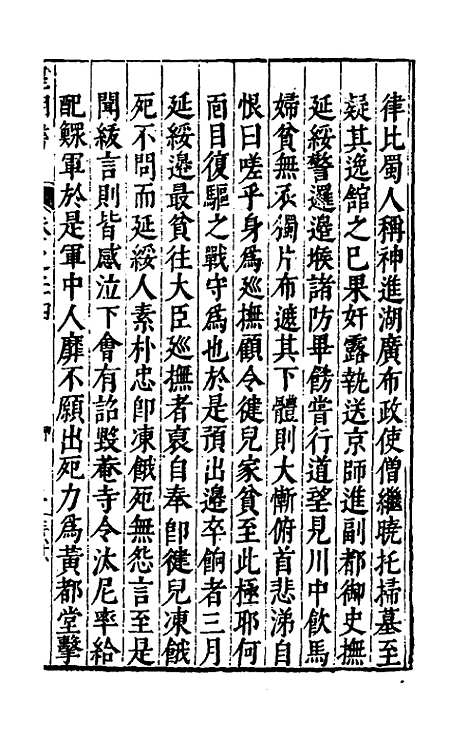 律比蜀人稱神進湖廣布政使僧繼曉托掃墓至
疑其逸舘之已果奸露執送京師進副都御史撫
延綏警邏邊堠諸防畢飭嘗行道望見川中飲馬
婦貧無衣獨片布遮其下體則大慚俯首悲涕自
恨曰嗟乎身為巡撫顧令徤兒家貧至此極邪何
面目復驅之戰守為也於是預出邊卒餉者三月
延綏邊最貧往大臣巡撫者裒自奉卽徤兒凍餓
死不問而延綏人素朴忠卽凍餓死無怨言至是
聞綏言則皆感泣下會有詔毀菴寺令汰尼率給
配鰥軍於是軍中人靡不願出死力為黃都堂擊